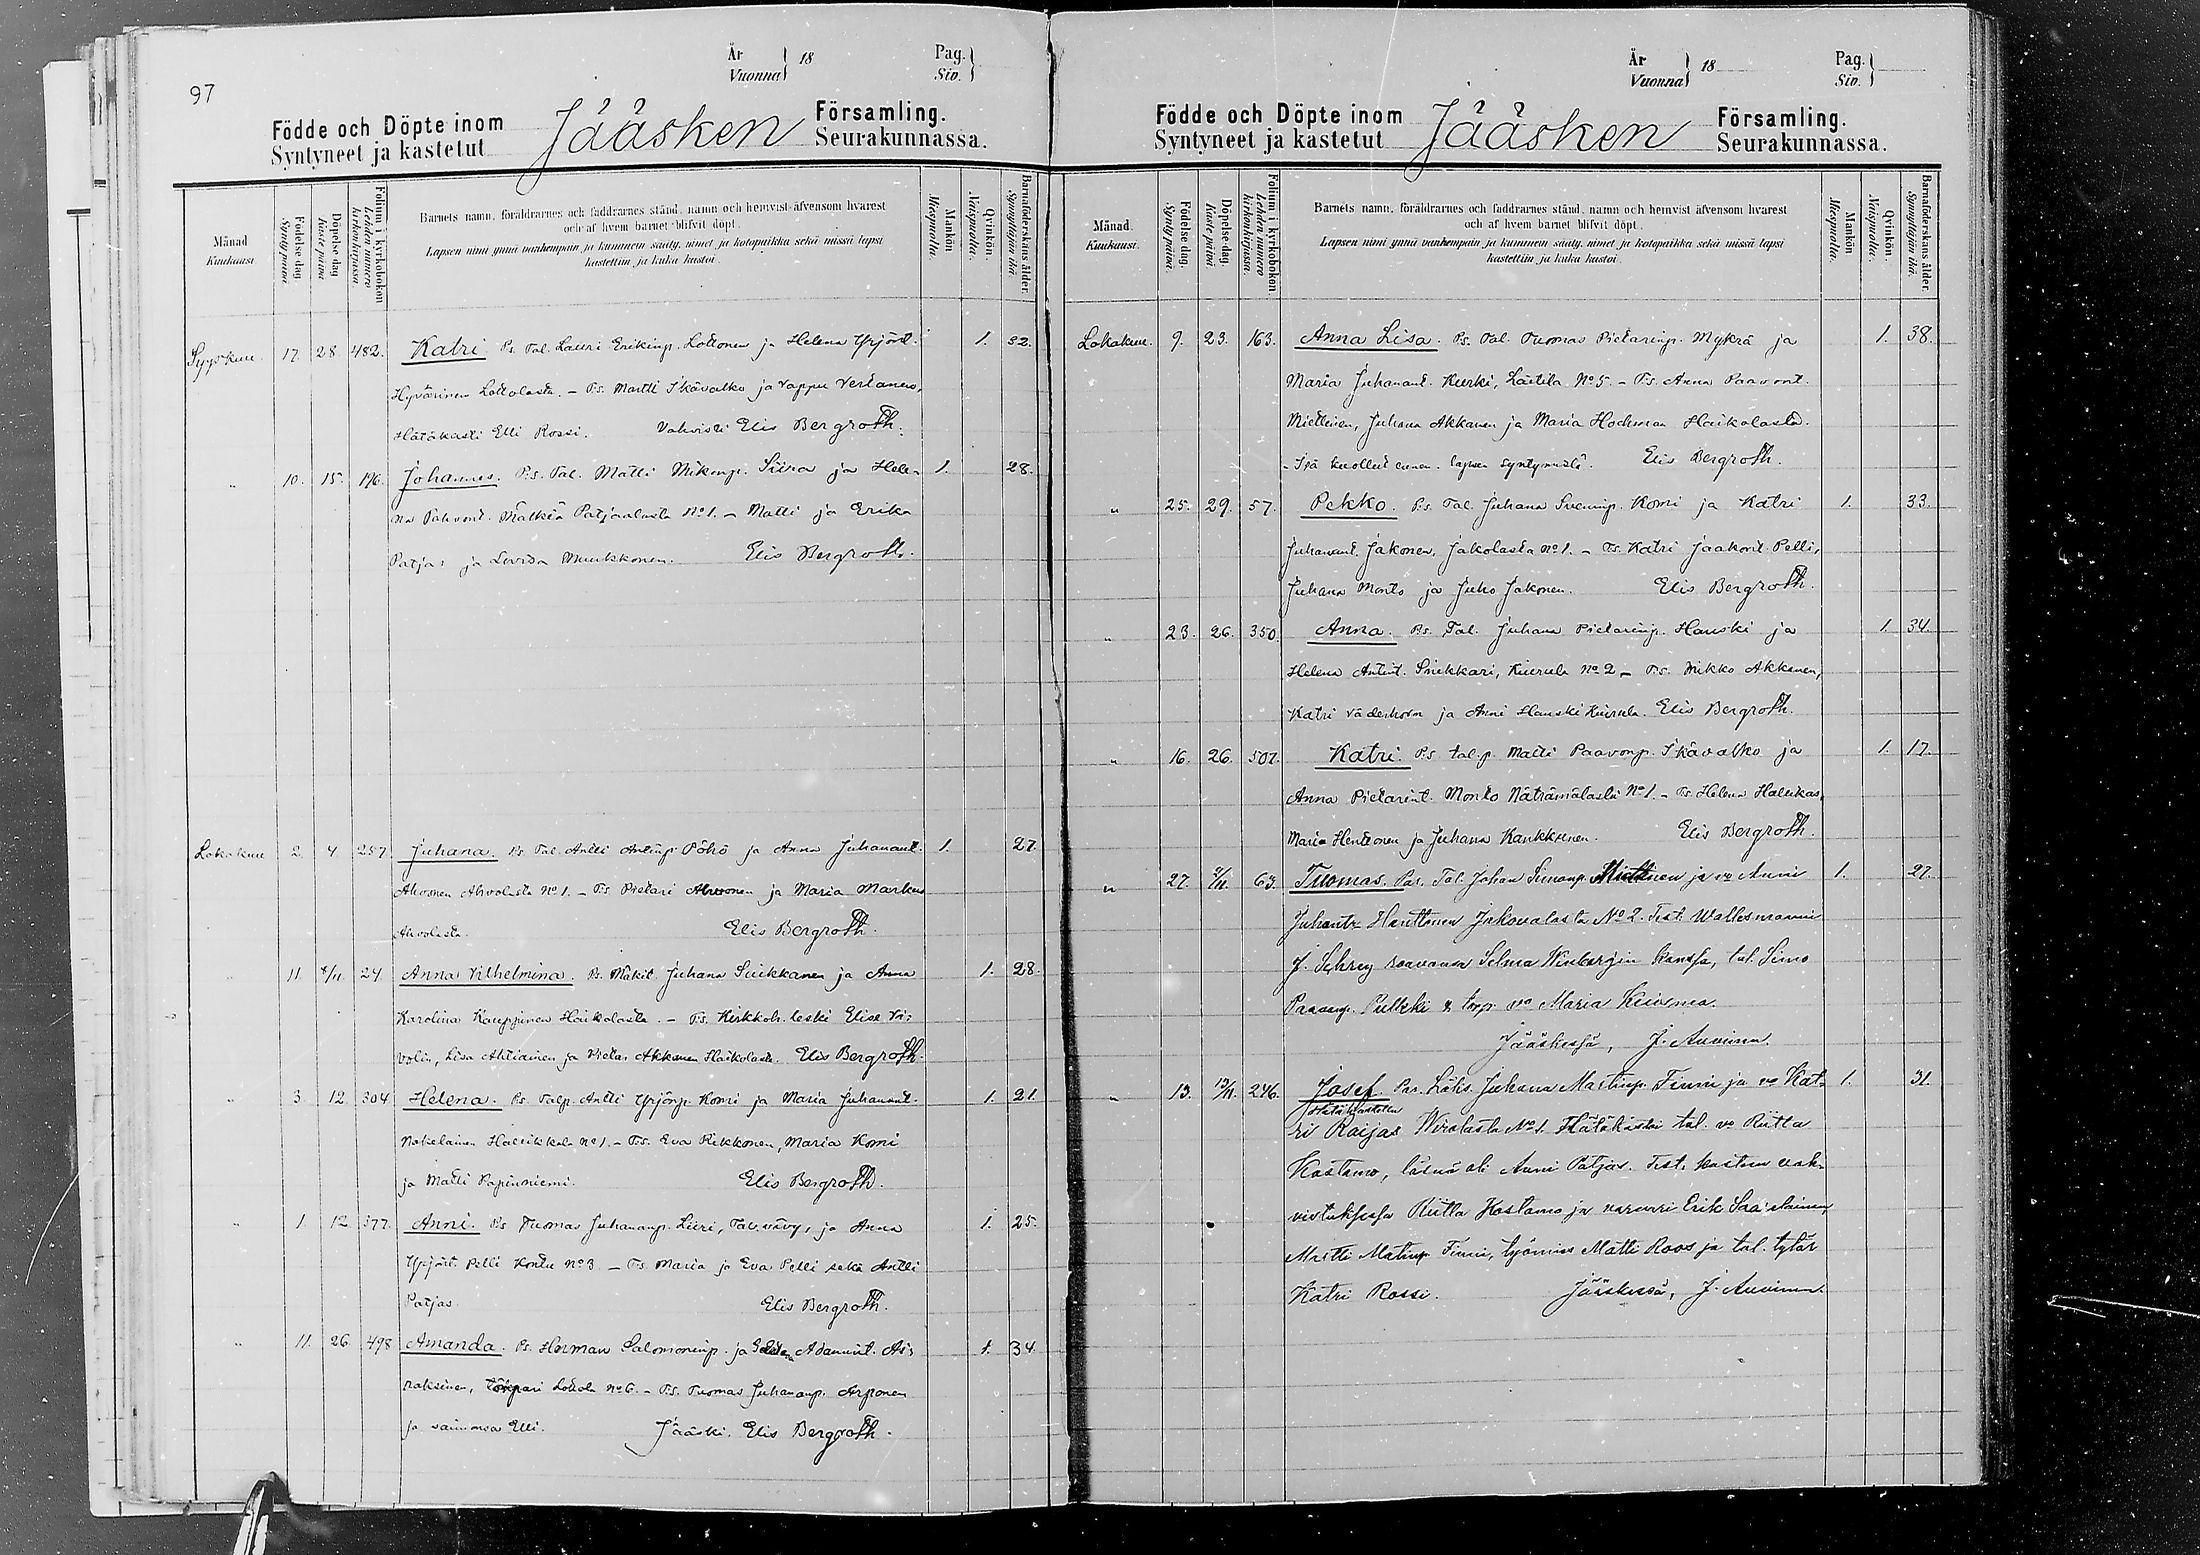 97
År
Vuonna } 18
Pag.
Siv. }
Födde och Döpte inom
Syntyneet ja kastetut
Jääsken
Församling.
Seurakunnassa.
Månad
Kuukausi.
Födelse dag.
Synty päivä.
Döpelse dag
Kaste päivä
Folium i kyrkoboken
Lehden numero kirkonkirjassa
Barnets namn, föräldrarnes och faddrarnes stånd, namn och hemvist äfvensom hvarest
och af hvem barnet blifvit döpt.
Lapsen nimi ynnä vanhempain ja kummein sääty, nimet ja kotopaikka sekä missä lapsi
kastettiin ja kuka kastoi.
Mankön
Miespuolta.
Qvinkön.
Naispuolta.
Barnaföderskans ålder.
Synnyttäjän ikä.
Syyskuu. 17. 28. 482. Katri. Ps. Tal. Lauri Erikinp. Lottonen ja Helena Yrjönt. 1. 32.
Hyvärinen Lottolasta. - Ts. Martti Ikävalko ja Vappu Vertanen,
Hätäkasti Elli Rossi. Vahvisti Elis Bergroth.
" 10. 15. 196. Johannes. Ps. Tal. Matti Mikonp. Siira ja Hele- 1. 28.
na Pahvont. Mälkiä Patjaalasta No 1. - Matti ja Erika
Patjas ja Lovisa Muukkonen. Elis Bergroth.
Lokakuu 2. 4. 257 Juhana. Ps. Tal. Antti Antinp. Pöhö ja Anna Juhanant. 1. 27.
Ahvonen Ahvolasta No 1. - Ts. Pietari Ahvonen ja Maria Markus
Ahvolasta. Elis Bergroth.
" 11. 8/11. 24. Anna Vilhelmina. Ps. Mäkit. Juhana Sinkkanen ja Anna 1. 28.
Karolina Kauppinen Haikolasta. - Ts. Kirkkoh. leski Elise Vi-
volin, Lisa Ahtiainen ja Pietar Akkanen Haikolasta. Elis Bergroth.
" 3. 12 304 Helena. Ps. Talp. Antti Yrjönp. Komi ja Maria Juhanant. 1. 21.
Nokelainen Hallikkala No 1. - Ts. Eva Rikkonen, Maria Komi
ja Matti Papinniemi. Elis Bergroth.
" 1. 12. 377. Anni. Ps. Tuomas Juhananp. Liiri, Tal. vävy, ja Anna 1. 25.
Yrjönt. Pelli Kontu No 3 - Ts. Maria ja Eva Pelli sekä Antti
Patjas. Elis Bergroth.
" 11. 26. 498 Amanda. Ps. Herman Salomoninp. ja Adamint. As- 1. 34.
raksinen, torpari Lottola No 6. - Ts. Tuomas Juhananp. Arponen
ja vaimonsa Elli. Jääski. Elis Bergroth.
År
Vuonna } 18
Pag.
Siv. }
Födde och Döpte inom
Syntyneet ja kastetut
Jääsken
Församling.
Seurakunnassa.
Månad.
Kuukausi.
Födelse dag.
Synty päivä.
Döpelse dag.
Kaste päivä
Folium i kyrkoboken
Lehden numero kirkonkirjassa.
Barnets namn, föräldrarnes och faddrarnes stånd, namn och hemvist äfvensom hvarest
och af hvem barnet blifvit döpt.
Lapsen nimi ynnä vanhempain ja kummein sääty, nimet ja kotopaikka sekä missä lapsi
kastettiin ja kuka kastoi.
Mankön
Miespuolta.
Qvinkön.
Naispuolta.
Barnaföderskans ålder.
Synnyttäjän ikä.
Lokakuu. 9. 23. 163. Anna Lisa. Ps. Tal. Tuomas Pietarinp. Mykrä ja 1. 38.
Maria Juhanant. Kurki, Laitila No 5. - Ts. Anna Paavont.
Miettinen, Juhana Akkanen ja Maria Hochman Haikolasta.
- Isä kuollut ennen lapsen syntymistä. Elis Bergroth.
" 25. 29. 57. Pekko. Ps. Tal. Juhana Komi ja Katri 1. 33.
Juhanant. Jakonen, Jakolasta No 1. - Ts. Katri Jaakont. Pelli,
Juhana Monto ja Juho Jakonen. Elis Bergroth.
" 23. 26. 350. Anna. Ps. Tal. Juhana Pietarinp. Hanski ja 1. 34
Helena Antint. Sinkkari, Kuurula No 2 - Ts. Mikko Akkanen,
Katri Väderhorn ja Anni Hanski Kuurula. Elis Bergroth.
" 16. 26. 507. Katri. Ps. tal. p. Matti Paavonp. Ikävalko ja 1. 17.
Anna Pietarint. Monto Näträmälästä No 1. - Ts. Helena Halukas,
Maria Henttonen ja Juhana Kaukkunen. Elis Bergroth.
" 27. 2/11. 63. Tuomas. Par. Tal. Johan Simonp. Miettinen ja vo Anni 1. 27.
Juhantr Hanttonen Jakovalasta No 2. Test. Wallesmanni
J. Schrey rouvansa Selma Winbergin kanssa, tal. Simo
Paavonp. Pulkki & torp. vo Maria Kiurma.
Jääskessä, J. Auvinen.
" 13. 13/11. 246. Josef. Par. Läks. Juhana Martinp. Finni ja vo Kat- 1. 31.
ri Raijas Wirolasta No 1. Hätäkastoi tal. vo Riitta
Kostamo, läsnä oli Anni Patjas. Test. kasteen vah-
vistuksessa Riitta Kostamo ja varavri Erik Saarelainen,
Martti Matinp. Finni, työmies Matti Roos ja tal. tytär
Katri Rossi. Jääskessä, J. Auvinen.